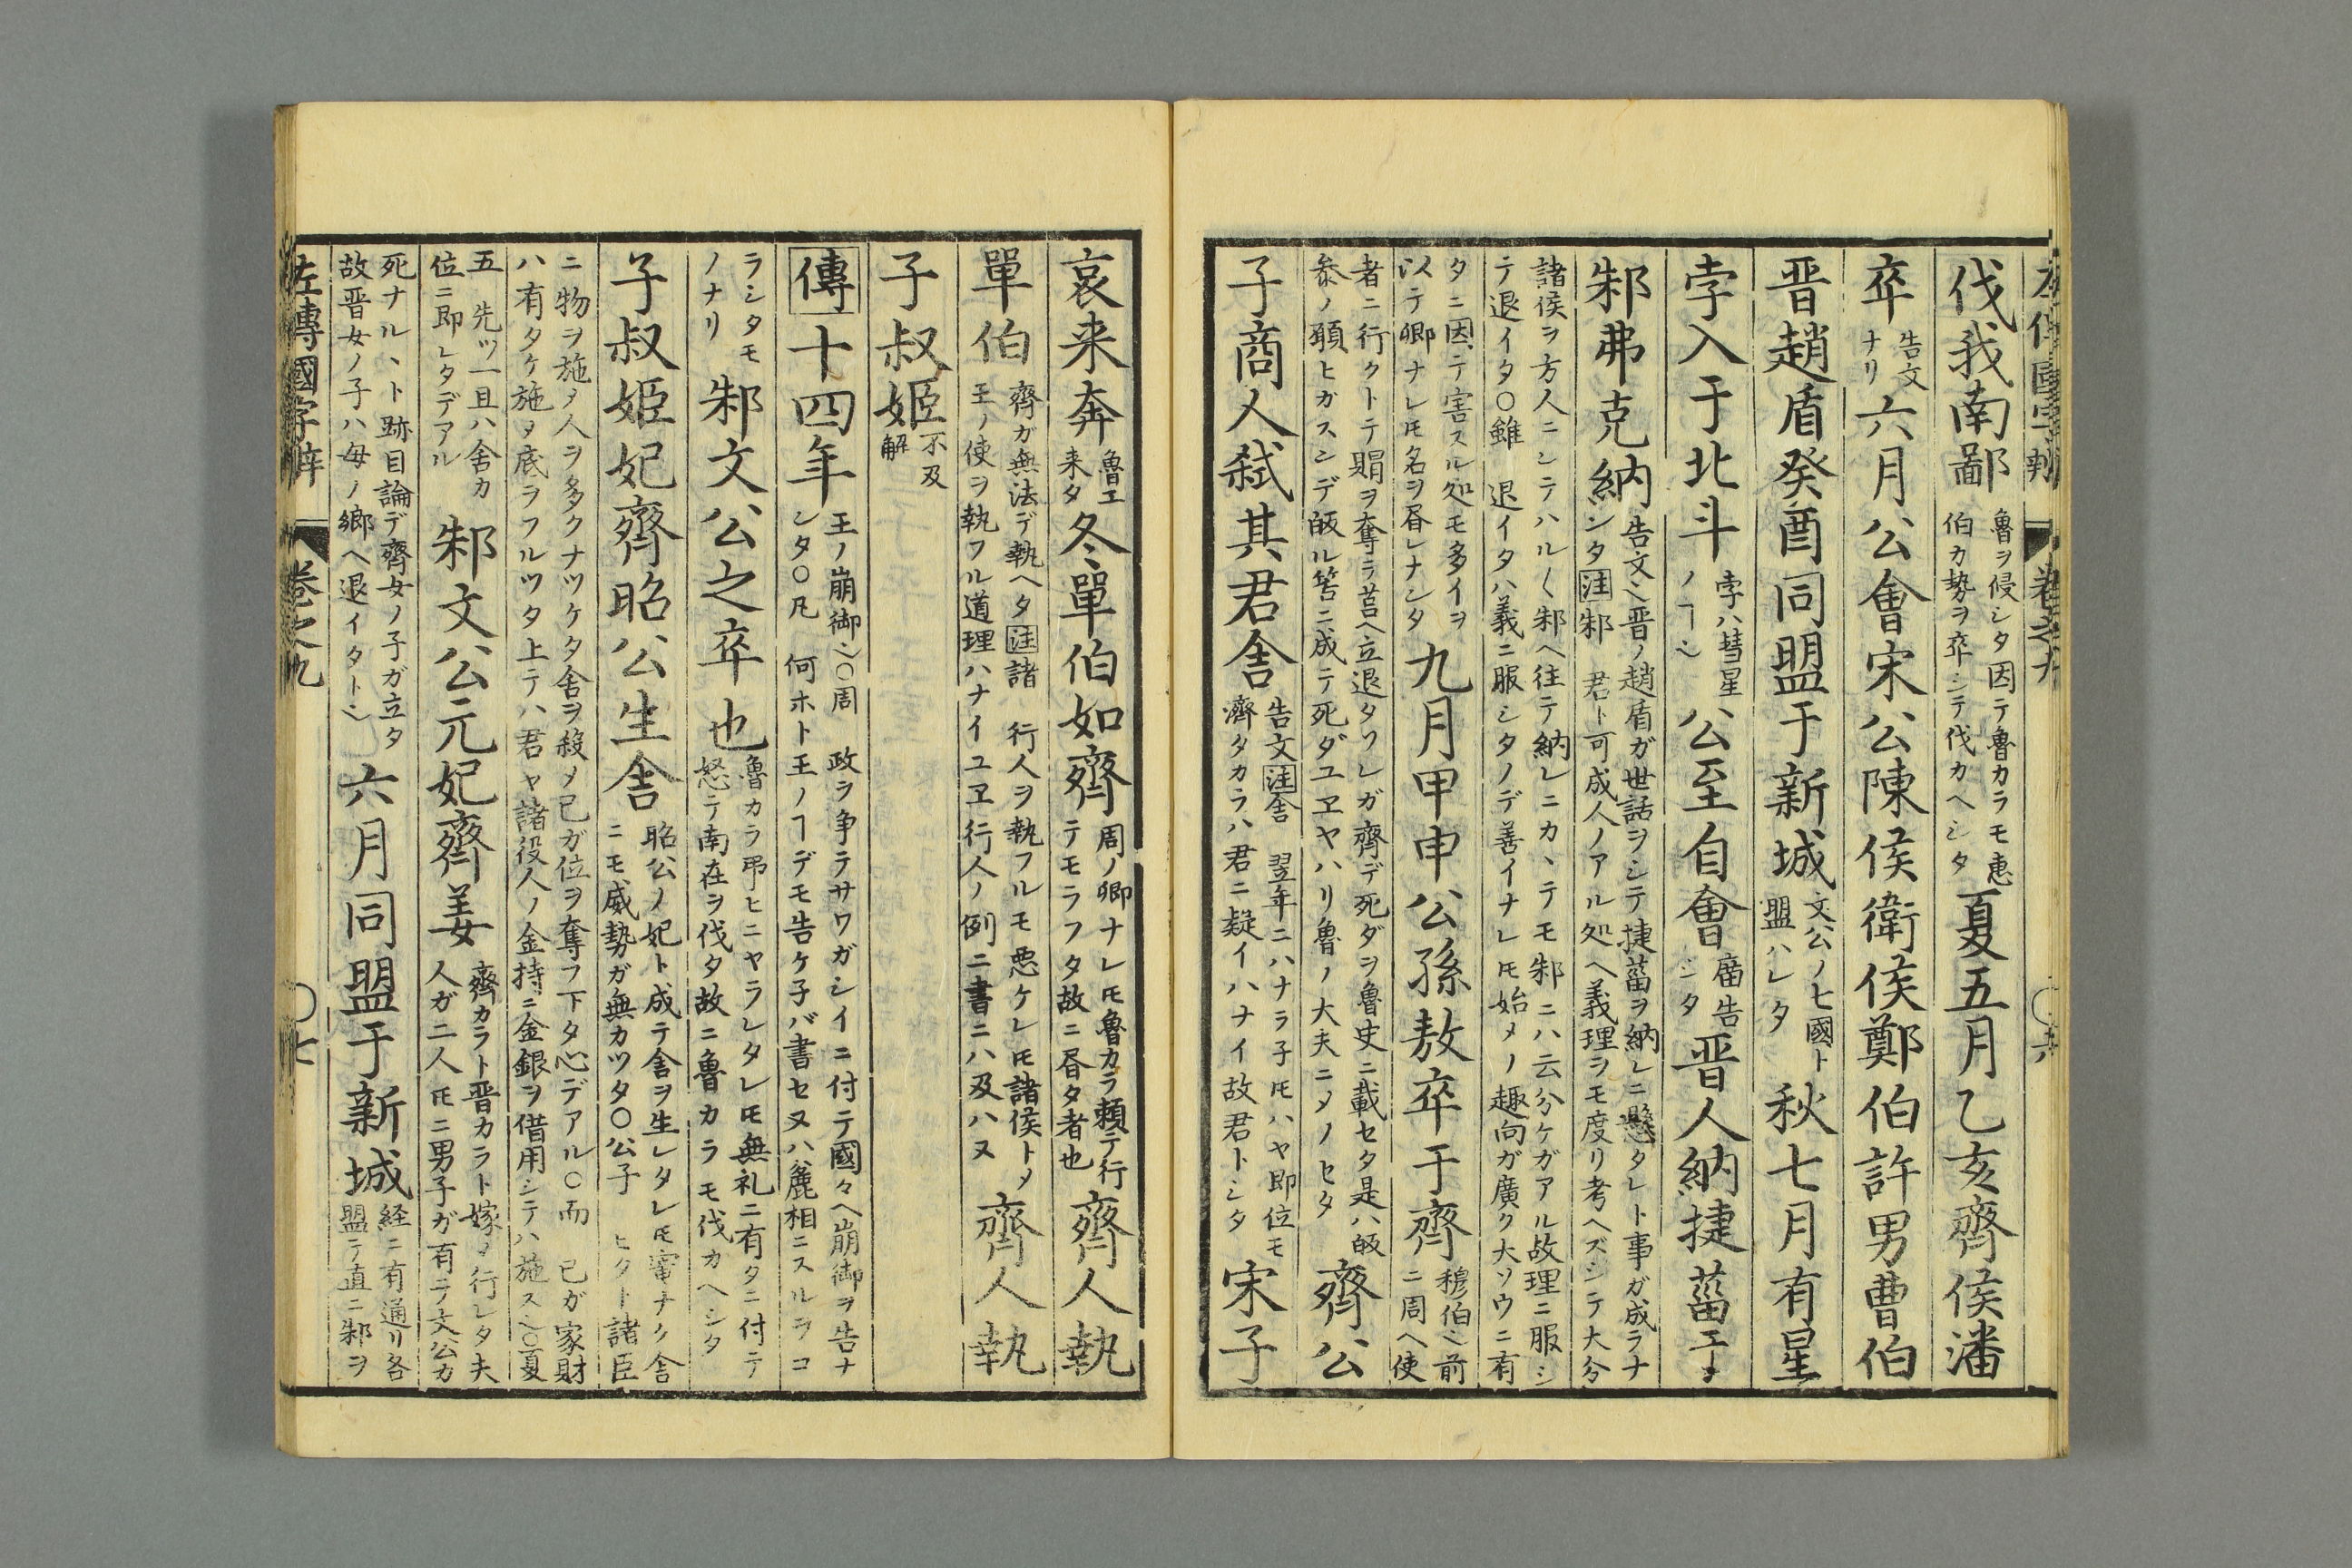 伐我南鄙 魯ヲ侵シタ因テ魯カラモ惠 伯カ勢ヲ卒シテ伐カヘシタ 夏五月乙亥齊侯潘
卒 告文 ナリ 六月公會宋公陳侯衛侯鄭伯許男曹伯
晋趙盾癸酉同盟于新城 文公ノ七國ト 盟ハレタ 秋七月有星
孛入于北斗 孛ハ彗星 公至自會 廟告 シタ 晋人納捷菑于
邾弗克納 告文 晋ノ趙盾ガ世話ヲシテ捷菑ヲ納レニ懸タレト事ガ成ラナ ンタ 注 邾 君ト可成人ノアル処ヘ義理ヲモ度リ考ヘズシテ大分
諸侯ヲ方人ニシテハル〱邾ヘ往テ納レニカヽテモ邾ニハ云分ケガアル故理ニ服シ テ退イタ〇雖 退イタハ義ニ服シタノデ善イナレ𪜈始メノ趣向ガ廣ク大ソウニ有
タニ因テ害スル処モ多イヲ 以テ卿ナレ𪜈名ヲ昼レナンタ 九月甲申公孫敖卒于齊 穆伯 前 ニ周ヘ使
者ニ行クトテ賜ヲ奪ラ莒ヘ立退タワレガ齊デ死ダヲ魯史ニ載セタ是ハ皈 参ノ願ヒガスンデ皈ル筈ニ成テ死ダユヱヤハリ魯ノ大夫ニメノセタ 齊公
子商人弑其君舎 告文 注 舎 翌年ニハナラ子𪜈ハヤ即位モ 濟タカラハ君ニ疑イハナイ故君トシタ 宋子
哀来奔 魯エ 来タ 冬單伯如齊 周ノ卿ナレ𪜈魯カラ頼テ行 テモラフタ故ニ昼タ者也 齊人執
單伯 齊ガ無法デ執ヘタ 注 諸 行人ヲ執フルモ悪ケレ𪜈諸侯トメ 王ノ使ヲ執フル道理ハナイユヱ行人ノ例ニ書ニハ及ハヌ 齊人執
子叔姫 不及 解
傳 十四年 王ノ崩御 〇周 政ヲ争テサワガシイニ付テ國々ヘ崩御ヲ告ナ シタ〇凡 何ホト王ノヿデモ告ケ子バ書セヌハ麁相ニスルヲコ
ラシタモ ノナリ 邾文公之卒也 魯カラ弔ヒニヤラレタレ𪜈無礼ニ有タニ付テ 怒テ南在ヲ伐タ故ニ魯カラモ伐カヘシタ
子叔姫妃齊昭公生舎 昭公ノ妃ト成テ舎ヲ生レタレ𪜈寵ナク舎 ニモ威勢ガ無カツタ〇公子 ヒクト諸臣
ニ物ヲ施メ人ヲ多クナツケタ舎ヲ殺メ已ガ位ヲ奪フ下タ心デアル〇而 已ガ家財 ハ有タケ施メ底ヲフルツタ上テハ君ヤ諸役人ノ金持ニ金銀ヲ借用シテハ施ス 〇夏
五 先ツ一旦ハ舎カ 位ニ即レタデアル 邾文公元妃齊姜 齊カラト晋カラト嫁メ行レタ夫 人ガ二人𪜈ニ男子ガ有ニテ文公カ
死ナルヽト跡目論デ齊女ノ子ガ立タ 故晋女ノ子ハ毎ノ郷ヘ退イタト 六月同盟于新城 経ニ有通リ各 盟テ直ニ邾ヲ
左傳國字辯 巻之九 〇七